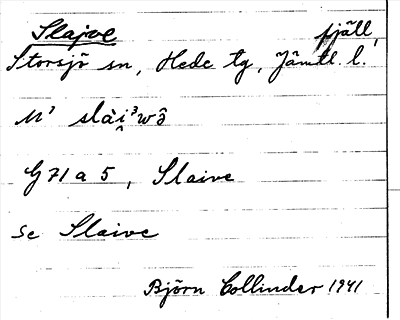 Slajve fjäll,
Storsjö sn, Hede tg, Jämtl. l.
G 71 a 5, Slaive
se Slaive
Björn Collinder 1941